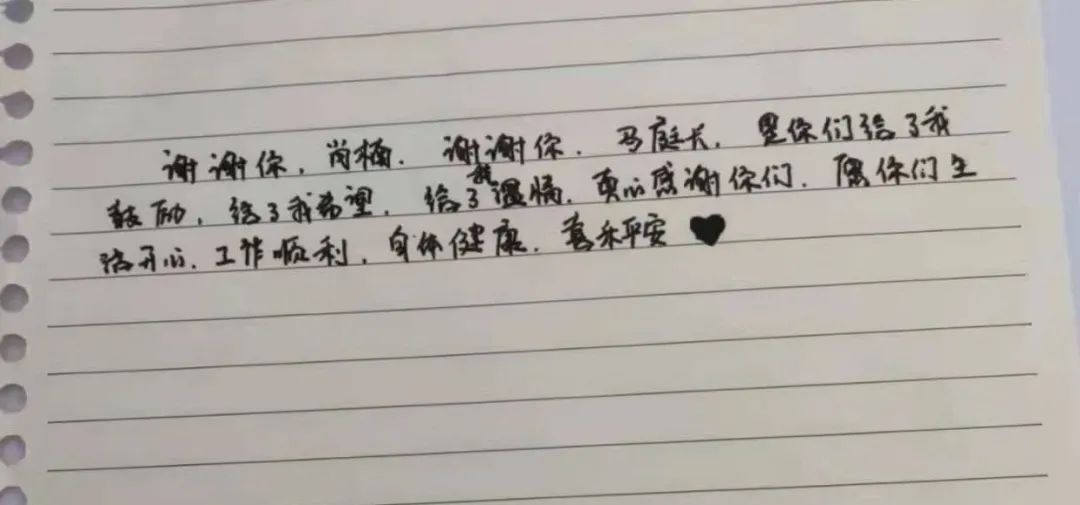 谢谢你，尚楠．谢谢你．马庭长．是你们给了我
鼓励，给了我希望，给了我温情．真心感谢你们．愿你们生
活开心．工作顺利，身体健康．喜乐平安